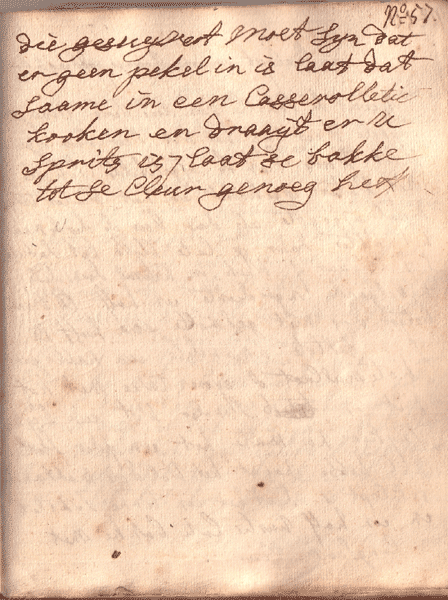 No. 57.
die gesuyvert moet syn dat
er geen pekel in is laat dat
saame in een Casserolletie
kooken en draayt er u
sprits is, laat se bakke
tot se Cleur genoeg heeft